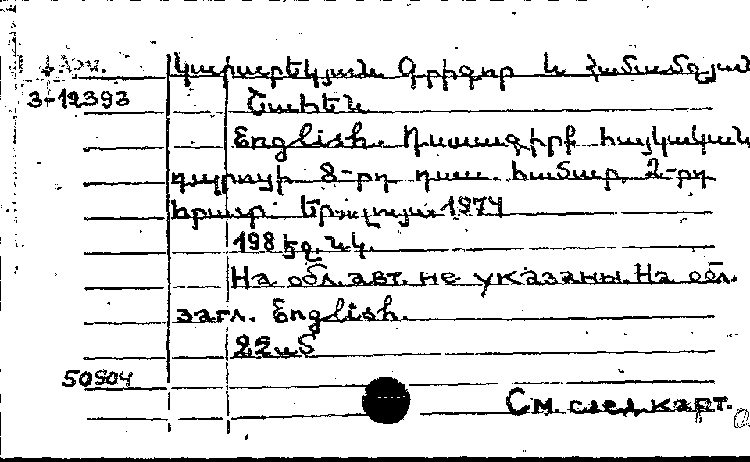 Арм.
Կարապետյան Գրիգոր և Համամջյան
3-12393
Շահեն
English. Դասագիրք հայկական
դպրոցի 8-րդ դաս. համար. 2-րդ
հրատ. Երևան. 1974
198 էջ. նկ.
На обл. авт. не указаны. На обл.
загл. English.
22սմ
50904
См. след. карт.